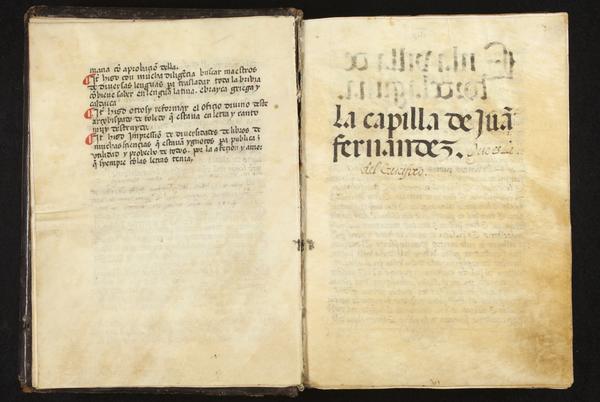 mana cō aprobaciō della.
¶ Jt hizo con mucha diligēcia buscar maestros
de diversas lenguas pa trasladar toda la bribia
cōbiene saber en lengua latina. ebrayca griega y
caldayca
¶ Jt hizo otrosy reformar el oficio divino deste
arçobispado de toledo q̄ estava en letra y canto
muy destruydo.
¶ Jt hizo Impresiō de diversidades de libros de
muchas sciencias q̄ estavā ygnotos pa publica
vtilidad y probecho de todos. por la aficiō y amor
q̄ syempre cō las letras tenia,
La capilla de Juā
fernandez. Que es la
del Crucifixo.